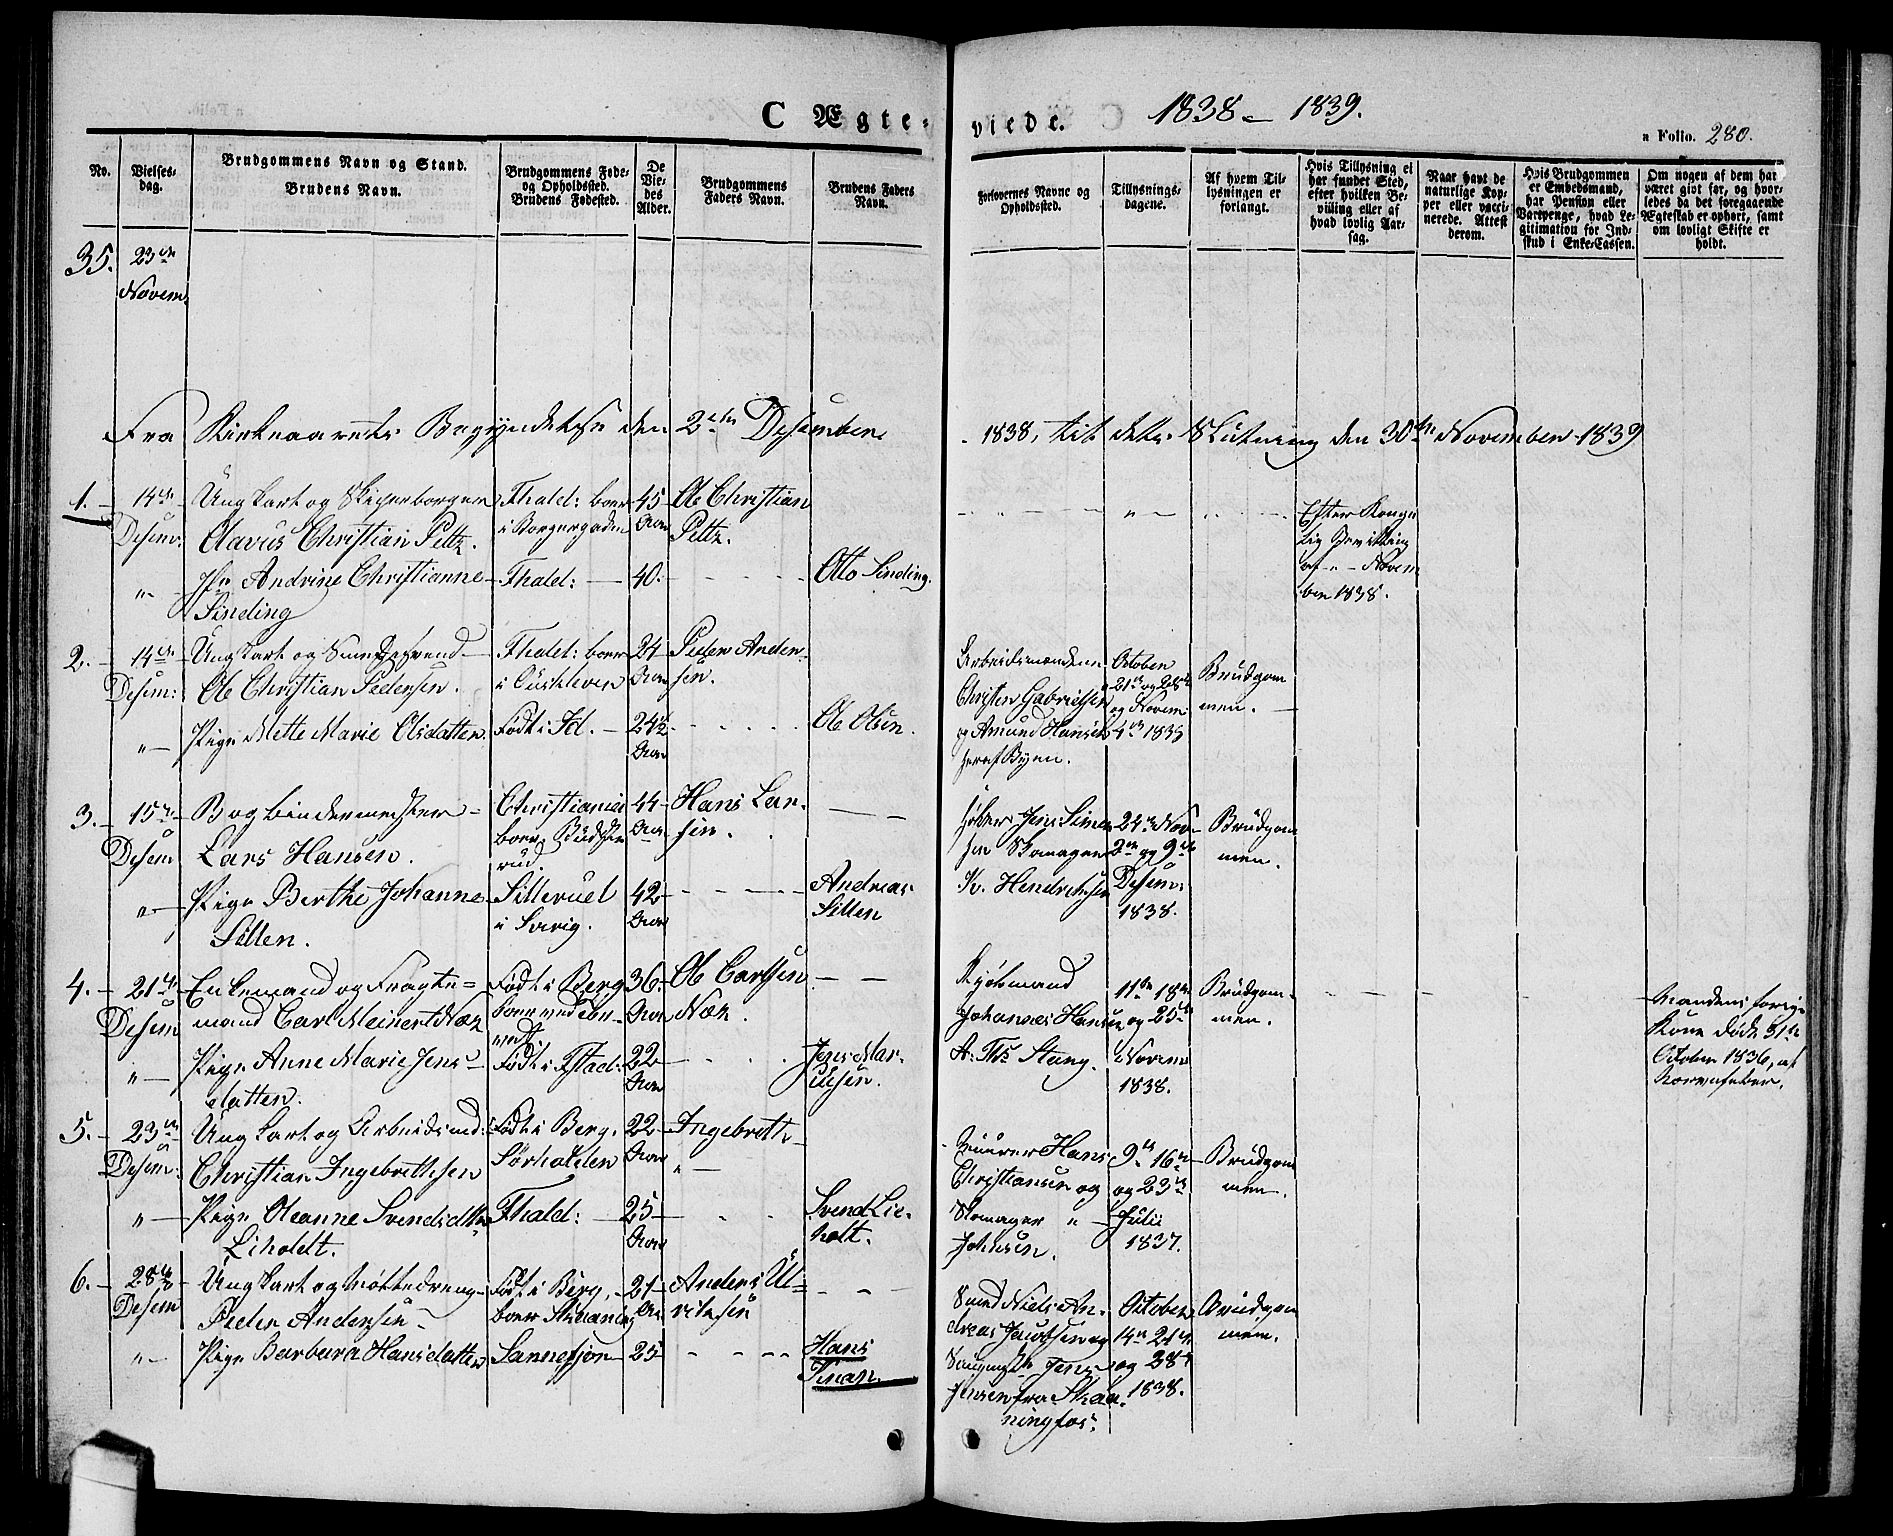 C Ægte-
viede.
1838 - 1839.
a Folio. 280.
No.
Vielses-
dag.
Brudgommens Navn og Stand.
Brudens Navn.
Brudgommens Føde-
og Opholdssted.
Brudens Fødested.
De
Vie-
des
Alder.
Brudgommens
Faders Navn.
Brudens Faders
Navn.
Forlovernes Navne og
Opholdssted.
Tillysnings-
dagene.
Af hvem Til-
lysningen er
forlangt.
Hvis Tillysning ei
har fundet Sted,
efter hvilken Be-
villing eller af
hvad lovlig Aar-
sag.
Naar havt de
naturlige Kop-
per eller vacci-
nerede. Attest
derom.
Hvis Brudgommen
er Embedsmand,
har Pension eller
Vartpenge, hvad Le-
gitimation for Ind-
skud i Enke-Cassen.
Om nogen af dem har
været gift før, og hvor-
ledes da det foregaaende
Ægteskab er ophørt, samt
om lovligt Skifte er
holdt.
35.
23de
Novem:
Fra Kirkeaarets Begyndelse den 2den Desember
1838, til dets Slutning den 30te November 1839
1.
14de
Desem:
Ungkarl og Skipperborger
Olavus Christian Peltz.
Fhald: boer
i Borgergaden
45
Aar
Ole Christian
Peltz.
Efter Konge
lig Bevilling
af - Novem
ber 1838.
Andrine Christianne
Sinding
Fhald:
40
Otto Sinding.
2.
14de
Desem:
Ungkarl og Smedesvend
Ole Christian Pedersen.
Fhald: boer
24
Aar
Peder Ander-
sen.
Arbeidsmændene
Christen Gabrielsen
og Amund Hansen
heraf Byen.
October
21de og 28de
og Novem:
4de 1835
Brudgom
men.
Pige Mette Marie Olsdatter.
Født i Id.
24½
Aar
Ole Olsen.
3.
15de
Desem
Bogbindermester
Lars Hansen.
Christiania
boer
44
Aar
Hans Lar-
sen.
Jens Simen
sen Skomager
Hendrichsen
24de Nov
2den og 9de
Desem:
1838.
Brudgom
men.
Pige Berthe Johanne
Sillen.
Sillerud
42
Aar
Andreas
Sillen
4.
21de
Desem
Enkemand og Fragte-
mand Carl Meinert Næz
Født i Berg
36
Aar
Ole Carlsen
Næz.
Kjøbmand
Johannes Hansen
Stang.
11te 18de
og 25de
Novem
1838.
Brudgom-
men.
Mandens forrige
Kone døde 31te
October 1836, af
Nervefeber.
Pige Anne Marie Jens-
datter.
Født i Fstad:
22
Aar
Jens Mar-
5.
23de
Desem:
Ungkarl og Arbeidsmd:
Christian Ingebrethsen
Født i Berg,
Sørhalden
22
Aar
Ingebreth
Hans
Christiansen og
Skomager
Johnsen.
9de 16de
og 23de
Julii
1837.
Brudgom
men.
Pige Oleanne Svendsdtr
Liholdt.
Fhald:
25
Aar
Svend Lie-
holt.
6.
28de
Desem
Ungkarl og Møllerdreng
Peder Andersen
Født i Berg,
21
Aar
Anders Ul-
Smed Niels An-
dreas Jacobsen og
Jens
Jensen fra Skaa-
ningfos.
October
14de 21de
og 28de
1838.
Brudgom
men.
Pige Barbara Hansdatter
Sannesjøn
25
Hans